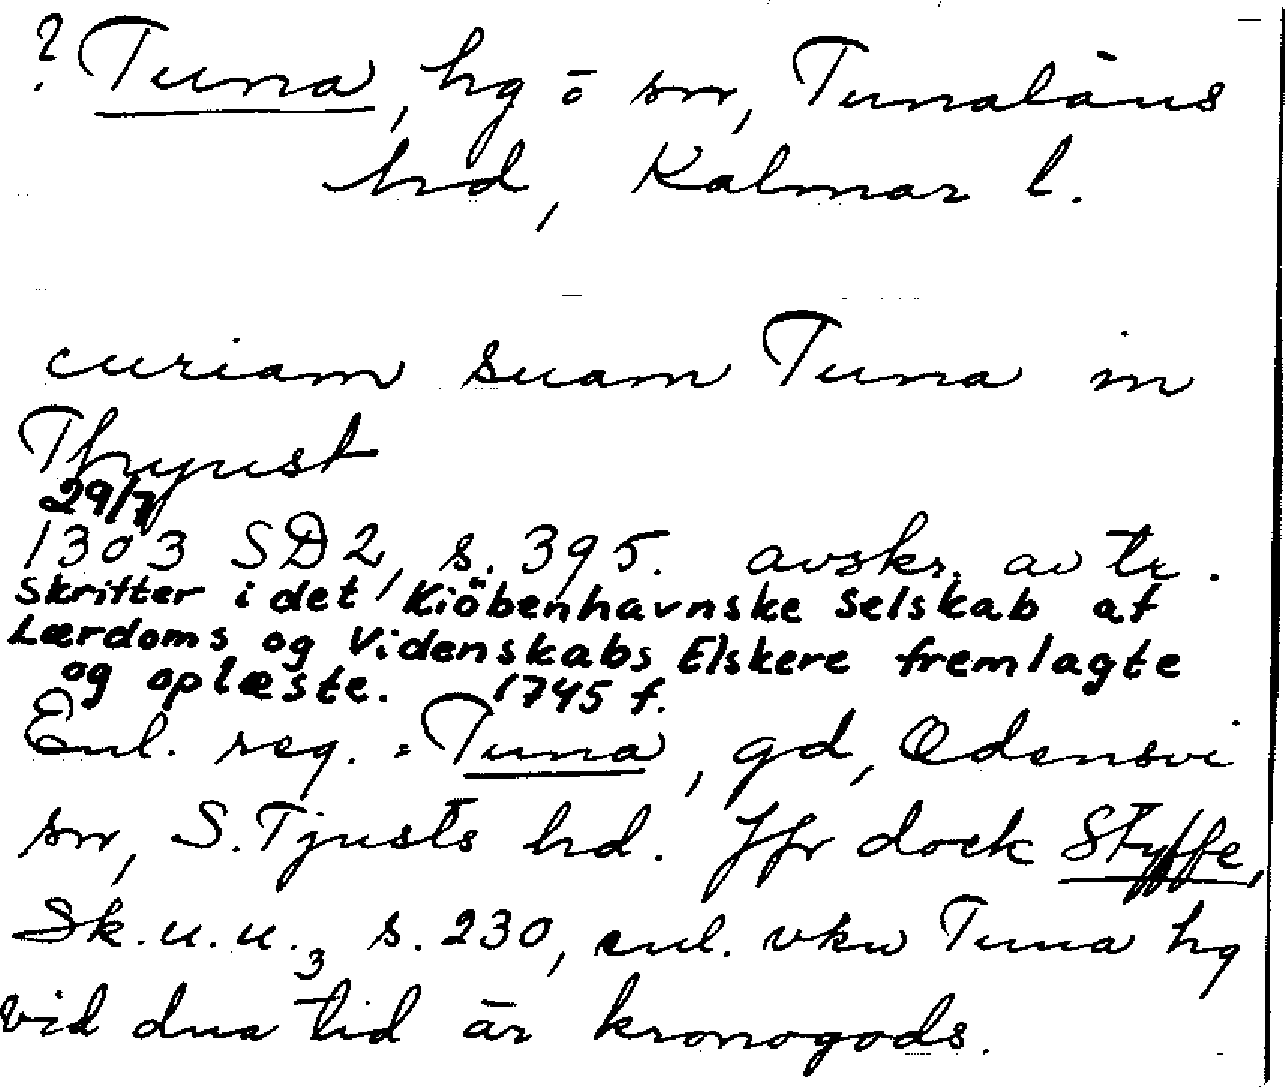 ? Tuna, hg o sn, Tunaläns
hd, Kalmar l.
curiam suam Tuna in
Thyust
29/7
1303 SD2, s. 395. avskr. av tr.
Skrifter i det Kiöbenhavnske Selskab af
Lærdoms og Videnskabs Elskere fremlagte
og oplæste. 1745 f.
Enl. reg. = Tuna, gd, Odensvi
sn, S. Tjusts hd. Jfr dock Styffe,
Sk.u.u.3 s. 230, enl. vkn Tuna hg
vid dna tid är kronogods.